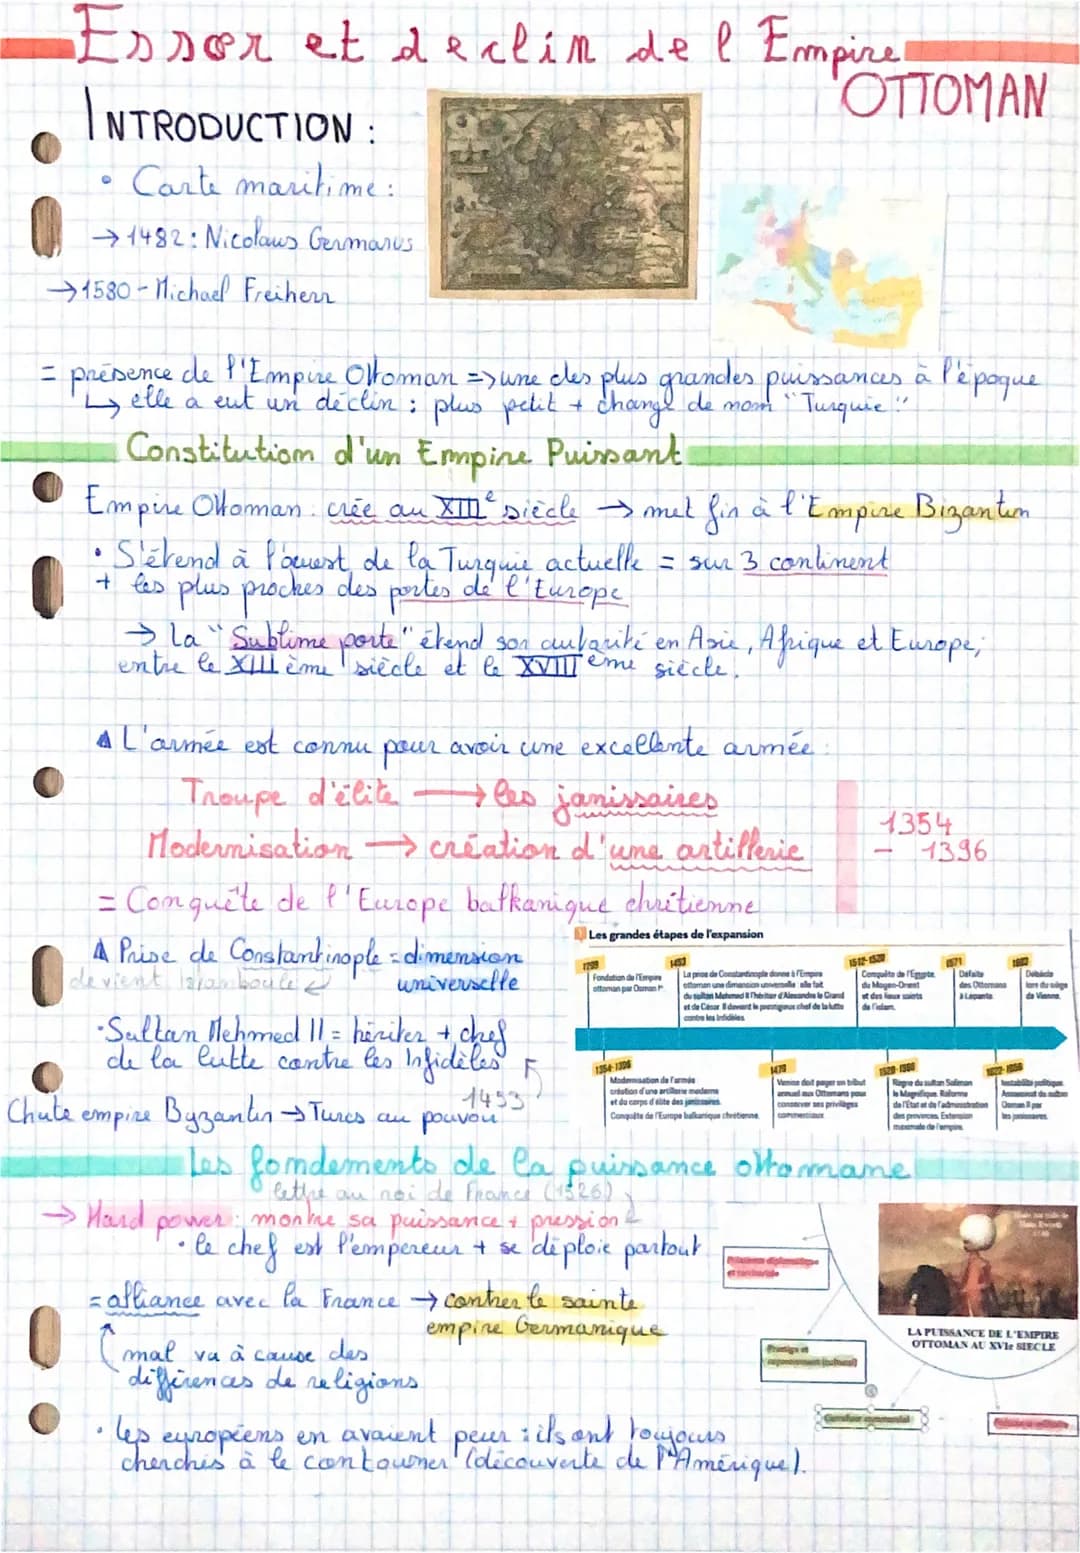 Essor et declin de l Empire
OTTOMAN
INTRODUCTION :
• Carte maritime :
→ 1482 : Nicolaus Germanus
→ 1580 - Michael Freiherr
= présence de l'Empire Ottoman => une des plus grandes puissances à l'époque
↳ elle a eut un déclin : plus petit + change de nom "Turquie"
Constitution d'un Empire Puissant
Empire Ottoman : crée au XIIIe siècle → met fin à l'Empire Bizantin
• S'étend à l'ouest de la Turquie actuelle = sur 3 continent
+ les plus proches des portes de l'Europe
→ La "Sublime porte" étend son autorité en Asie, Afrique et Europe,
entre le XIIIème siècle et le XVIIIème siècle.
L'armée est connu pour avoir une excellente armée :
Troupe d'élite → les janissaires
Modernisation → création d'une artillerie
1354
- 1396
= Conquête de l'Europe balkanique chrétienne
Prise de Constantinople = dimension
universelle
devient Istamboule
• Sultan Mehmed II = hériter + chef
de la lutte contre les Infidèles
1453
Chute empire Byzantin → Turcs au pouvoir
Les grandes étapes de l'expansion
1299
Fondation de l'Empire
ottoman par Osman Ier
1453
La prise de Constantinople donne à l'Empire
ottoman une dimension universelle : elle fait
du sultan Mehmed II l'héritier d'Alexandre le Grand
et de César. Il devient le prestigieux chef de la lutte
contre les Infidèles.
1512-1520
Conquête de l'Egypte,
du Moyen-Orient
et des lieux saints
de l'islam.
1571
Défaite
des Ottomans
à Lépante.
Débâcle
lors du siège
de Vienne.
1354-1396
Modernisation de l'armée :
création d'une artillerie moderne
et du corps d'élite des janissaires.
Conquête de l'Europe balkanique chrétienne.
1479
Venise doit payer un tribut
annuel aux Ottomans pour
conserver ses privilèges
commerciaux
1520-1566
Règne du sultan Soliman
le Magnifique. Réforme
de l'Etat et de l'administration
des provinces. Extension
maximale de l'empire.
1622-1656
Instabilité politique.
Assassinat du sultan
Osman II par
les janissaires.
Les fondements de la puissance ottomane
lettre au roi de France (1526)
→ Hard power : montre sa puissance + pression
• le chef est l'empereur + se déploie partout
= alliance avec la France → contrer le sainte
empire Germanique
mal vu à cause des
différences de religions
• les européens en avaient peur : ils ont toujours
cherchés à le contourner (découverte de l'Amérique).
LA PUISSANCE DE L'EMPIRE
OTTOMAN AU XVIe SIECLE